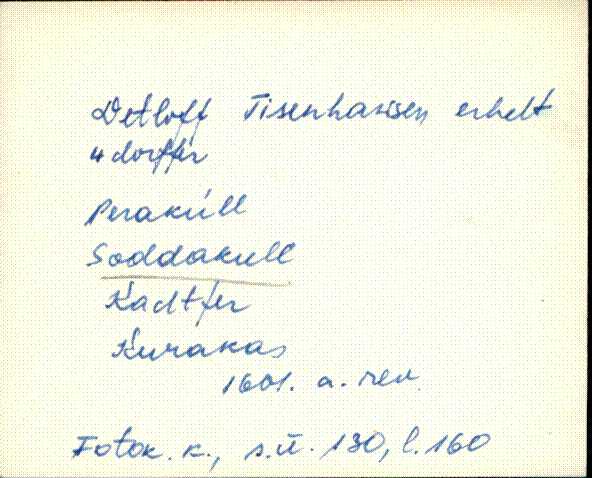 Detloff Tisenhausen erhelt
4 dorffer
Peraküll
Soddakull
Kadtfer
Kurakas
1601. a. rev.
Fotok. k., s.ü. 130, l. 160